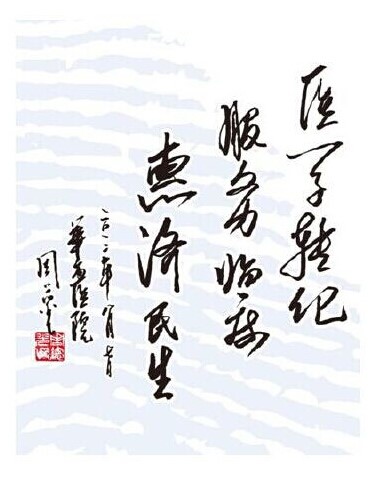 医学转化
服务临床
惠济民生
二〇一二年八月七日
华西医院
周